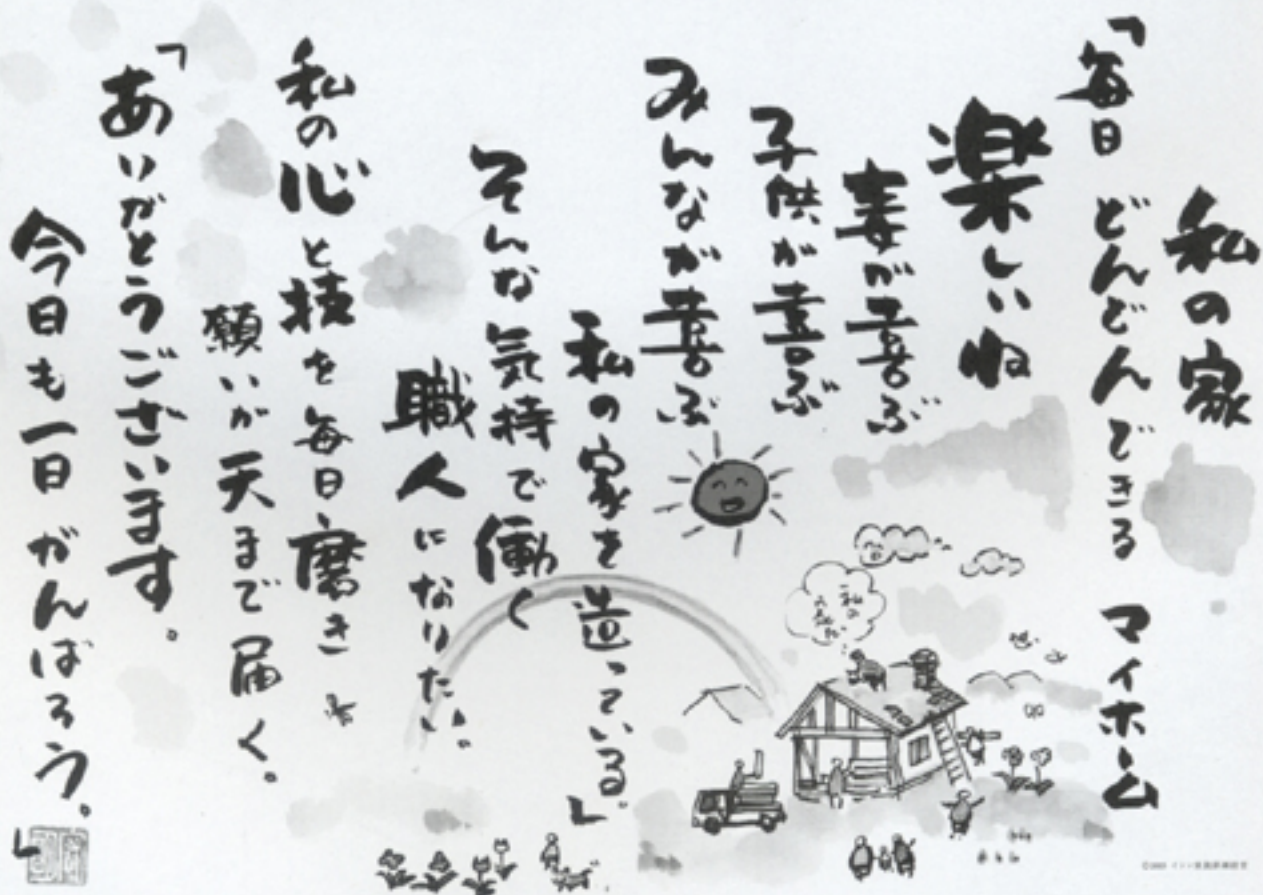 私の家
「毎日 どんどんできる マイホーム
楽しいね
妻が喜ぶ
子供が喜ぶ
みんなが喜ぶ
私の家を造っている。」
そんな気持で働く
職人になりたい。
私の心と技を毎日磨き
願いが天まで届く。
「ありがとうございます。
今日も一日 がんばろう。」